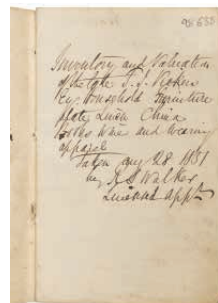 98 633
Inventory and Valuation
of the late J. J.
Esq. Household Furniture
plate Linen China
Books Wine and Wearing
apparel
Taken 28 1881
by R S Walker